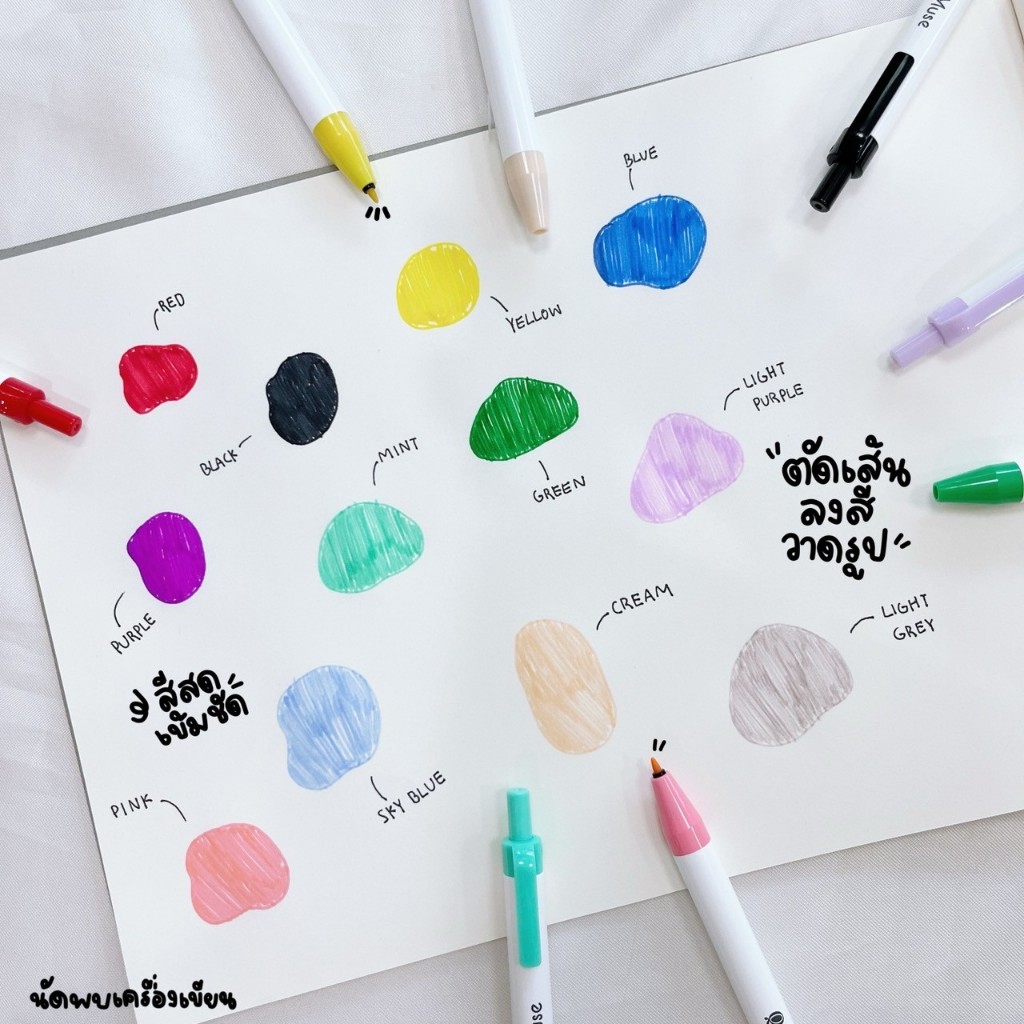 Muse
BLUE
RED
YELLOW
BLACK
MINT
GREEN
LIGHT
PURPLE
"ตัดเส้น
ลงสี
วาดรูป"
PURPLE
CREAM
LIGHT
GREY
สีสด
เข้มชัด
SKY BLUE
PINK
นัดพบเครื่องเขียน